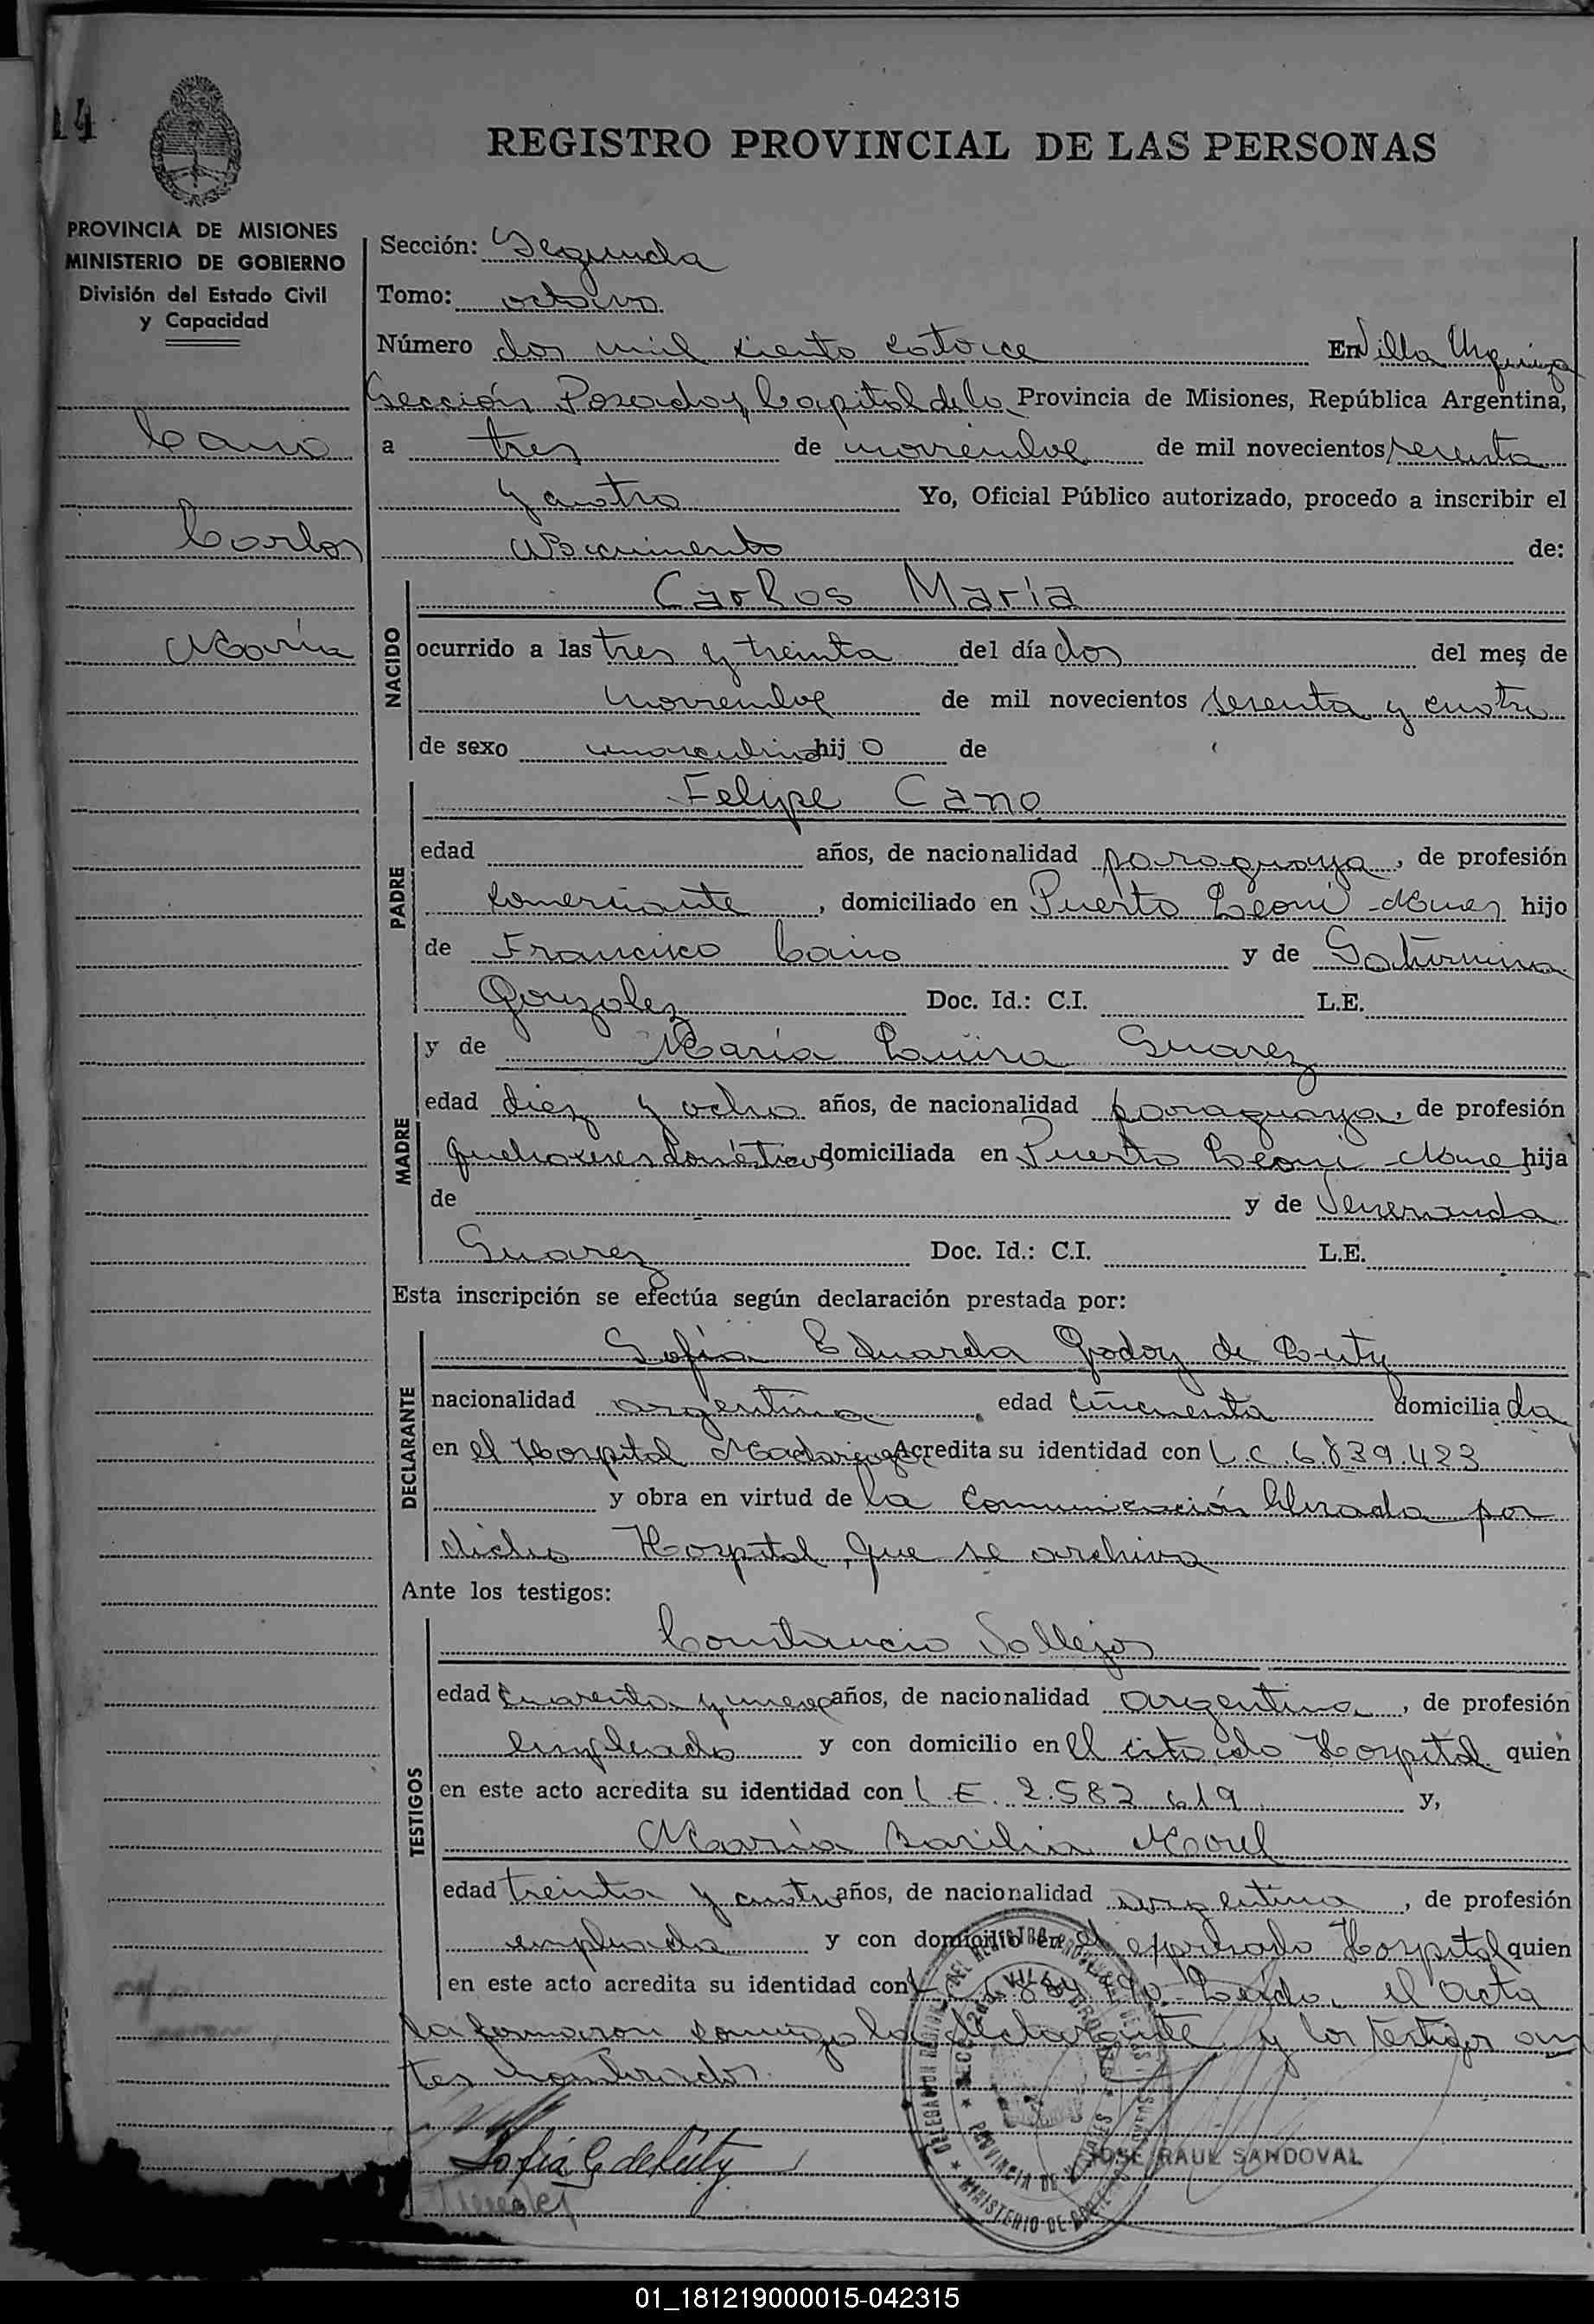 14
REGISTRO PROVINCIAL DE LAS PERSONAS
PROVINCIA DE MISIONES
MINISTERIO DE GOBIERNO
División del Estado Civil
y Capacidad
Cano
Carlos
María
Sección: Segunda
Tomo: octavo
Número dos mil ciento catorce En Villa Urquiza
Sección Posadas, Capital de la Provincia de Misiones, República Argentina,
a tres de noviembre de mil novecientos sesenta
y cuatro Yo, Oficial Público autorizado, procedo a inscribir el
Nacimiento de:
NACIDO
Carlos María
ocurrido a las tres y treinta del día dos del mes de
noviembre de mil novecientos sesenta y cuatro
de sexo masculino hijo de
PADRE
Felipe Cano
edad años, de nacionalidad paraguaya, de profesión
comerciante, domiciliado en Puerto Leoni hijo
de Francisco Cano y de Saturnina
Gonzalez Doc. Id.: C.I. L.E.
MADRE
y de María Luisa Suarez
edad diez y ocho años, de nacionalidad paraguaya, de profesión
quehaceres domésticos domiciliada en Puerto Leoni hija
de y de Veneranda
Suarez Doc. Id.: C.I. L.E.
Esta inscripción se efectúa según declaración prestada por:
DECLARANTE
Sofía Eduarda Godoy de
nacionalidad argentina, edad cincuenta domiciliada
en el Hospital Madariaga Acredita su identidad con L.C. 6.839.423
y obra en virtud de la comunicación librada por
dicho Hospital, que se archiva
Ante los testigos:
TESTIGOS
Constancio Vallejos
edad cuarenta y nueve años, de nacionalidad argentina, de profesión
empleado y con domicilio en el citado Hospital quien
en este acto acredita su identidad con L.E. 2.582.619 y,
María Basilia
edad treinta y cuatro años, de nacionalidad argentina, de profesión
empleada y con domicilio en el expresado Hospital quien
en este acto acredita su identidad con Leída el acta
la firmaron conmigo la declarante y los testigos an
tes nombrados.
Sofía G de
JOSE RAUL SANDOVAL
PROVINCIA DE MISIONES
MINISTERIO DE GOBIERNO
01_181219000015-042315